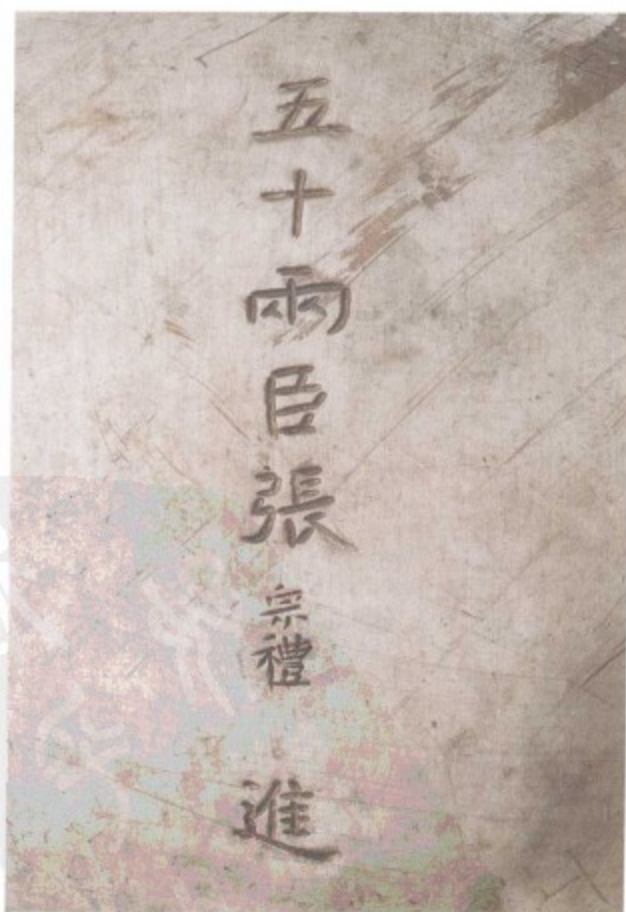 五十兩臣張宗禮進